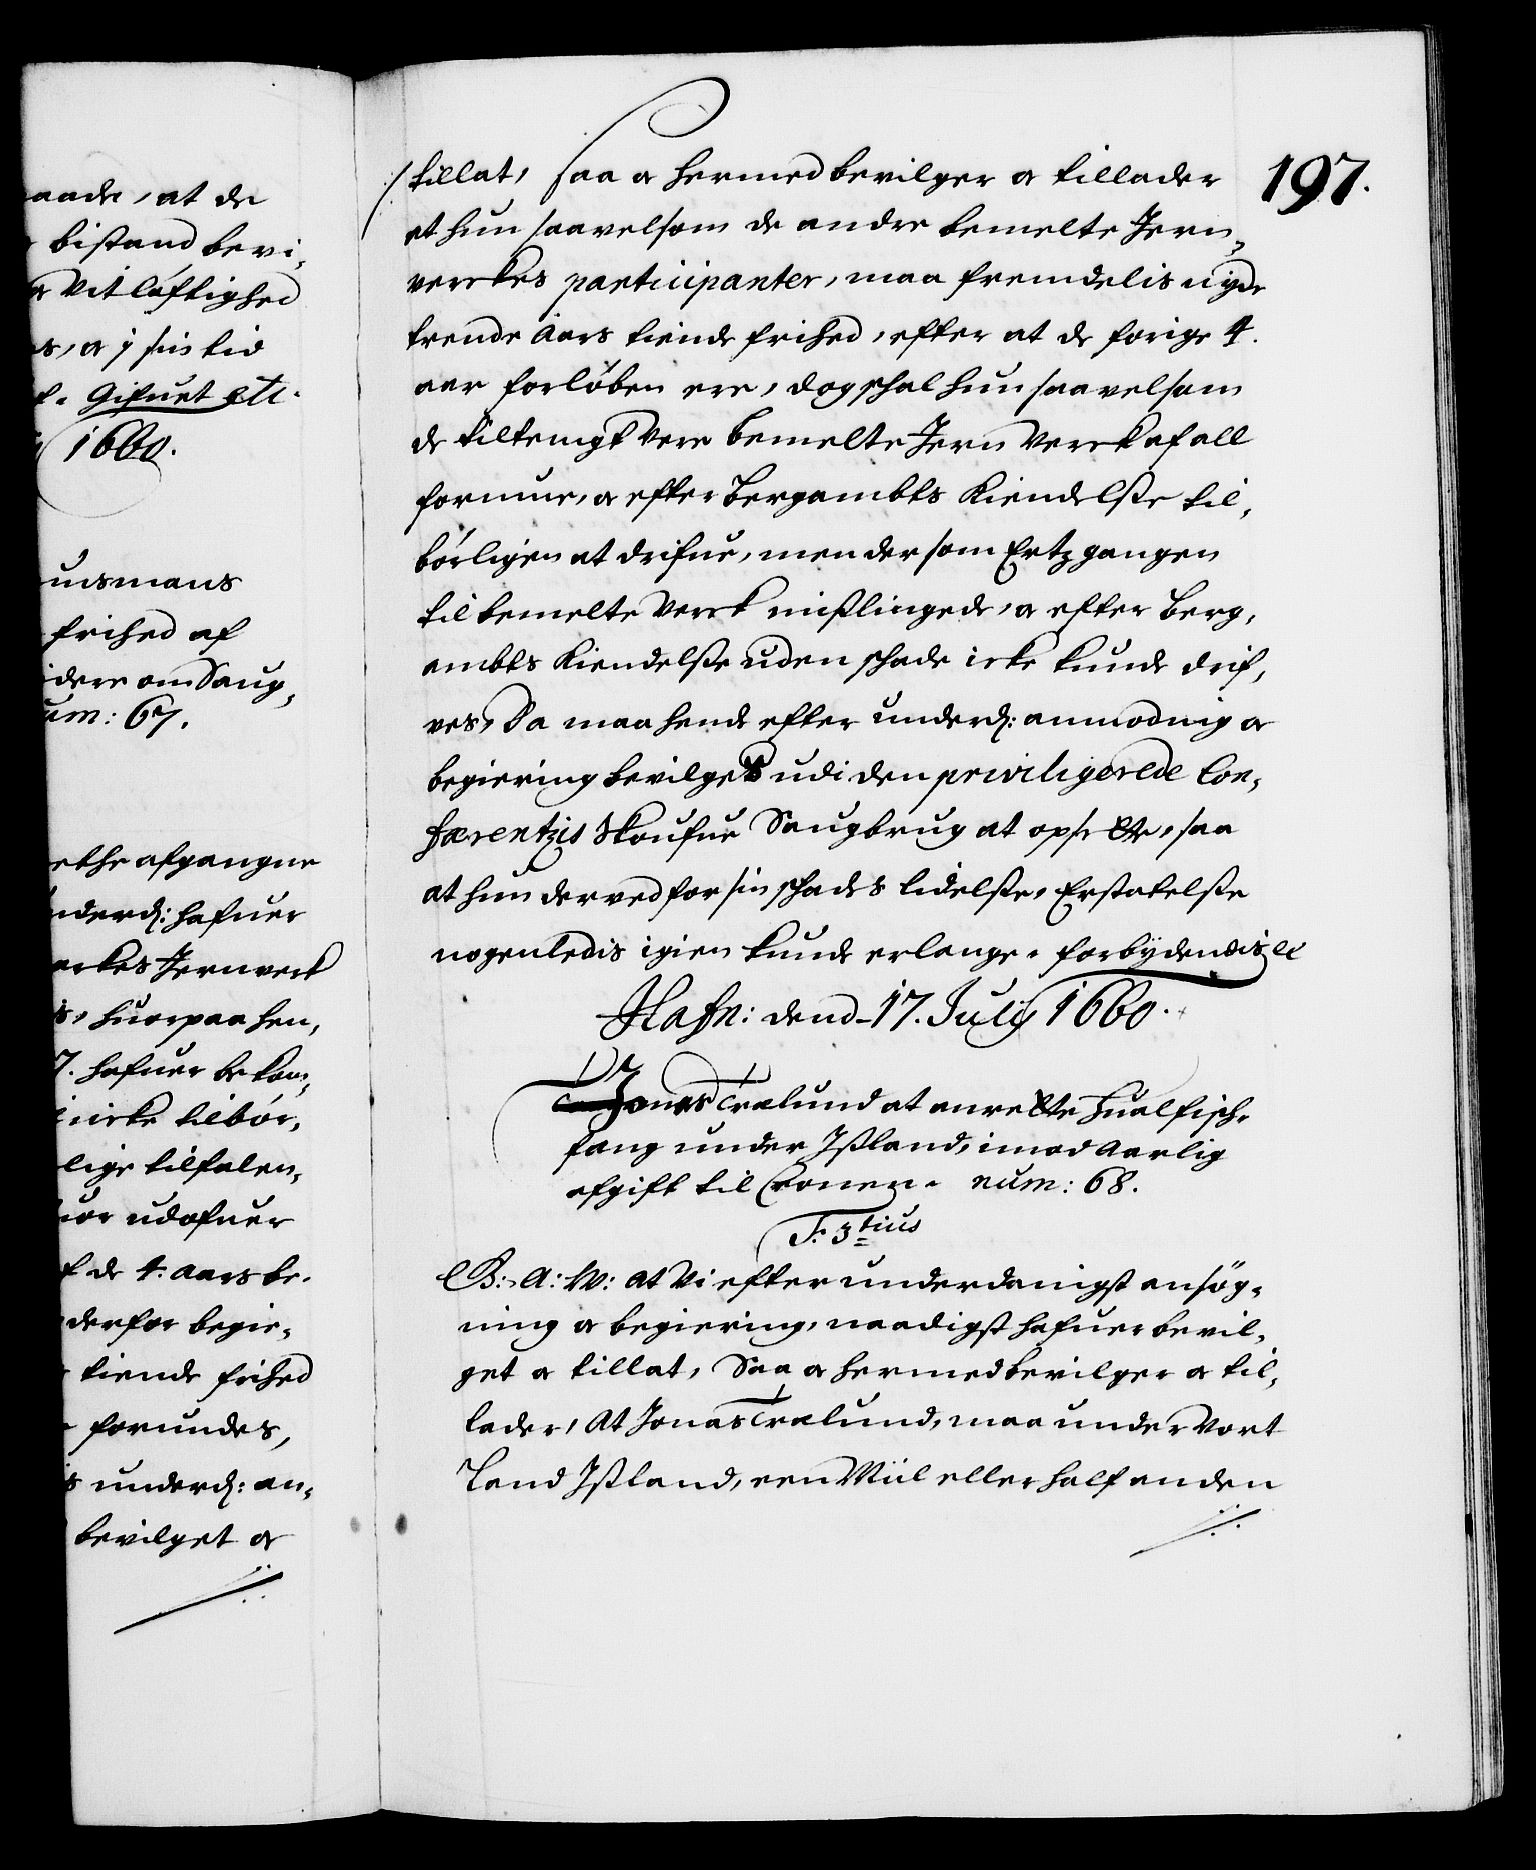 aade, at de
bistand bevi,
Vitløftighed
s, og i sin tid
Gifuet etc.
1660.
uismans
frihed af
idere om Saug,
um: 67.
ethe afgangne
nderd: hafuer
erkes Jernverk
s, huorpaa hen,
7. hafuer bekom,
icke tilbør,
lige tilfalen,
uor udofuer
f de 4. aars be.
derfor begie,
tiende frihed
forundes,
s underd: an,
bevilget og
197.
tillat, saa og hermed bevilger og tillader
at hun saavelsom de andre bemelte Jern,
verckes participanter, maa fremdelis nyde
trende Aars tiende frihed, efter at de forige 4.
aar forløben ere, dog schal hun saavelsom
de tiltengt vere bemelte Jern Verck af all
formue, og efter Bergambts Kiendelsse til,
børligen at drifue, men dersom Ertzgangen
til bemelte Verck misslingede, og efter Berg,
ambts Kiendelsse uden schade icke kunde drif,
ves, Da maa hende efter underd: anmodnig og
begiering bevilges udi den privilegerede Con,
færentzis Skoufue Saugbrug at opsette, saa
at hun derved for sin schades lidelsse, Erstatelsse
nogenledis igien kunde erlange. forbydendis etc
Hafn: dend 17. Julij 1660.
Jonas Trælund at anrette Hualfisch,
fang under Issland, imod Aarlig
afgift til Cronen. num: 68.
F. 3tius
B: A: W: At Vi efter underdanigst ansøg,
ning og begiering, naadigst hafuer bevil,
get og tillat, Saa og hermed bevilger og til,
lader, At Jonas Trælund, maa under Vort
Land Issland, een Miil eller half anden